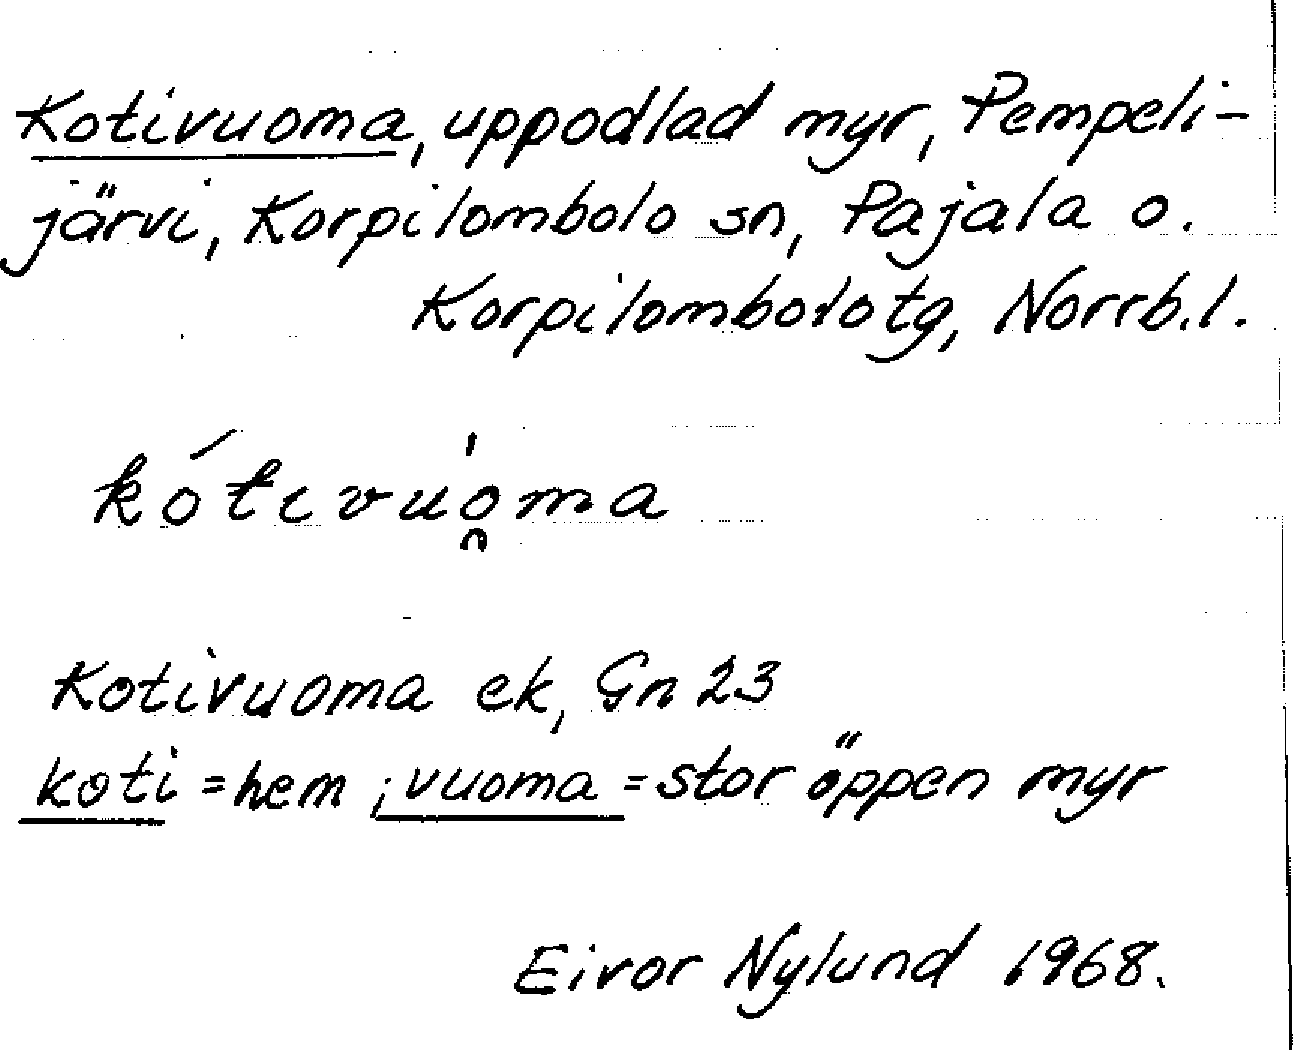 Kotivuoma, uppodlad myr, Pempeli-
järvi, Korpilombolo sn, Pajala o.
Korpilombolo tg, Norrb.l.
kótivuo̯ma
Kotivuoma ek, Gn 23
koti = hem ; vuoma = stor öppen myr
Eivor Nylund 1968.